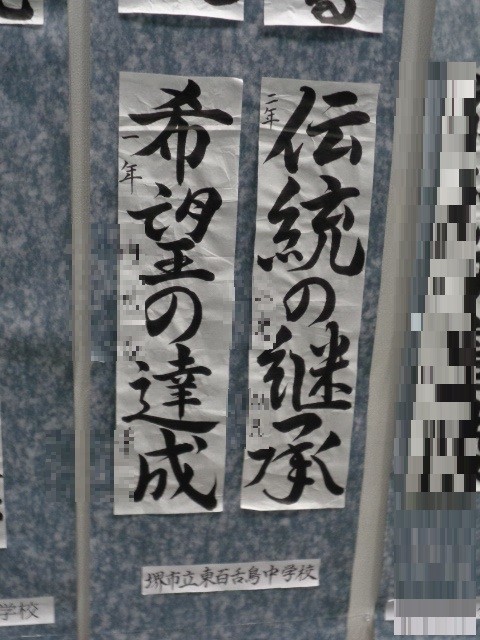 伝統の継承
二年
希望の達成
一年
堺市立東百舌鳥中学校
学校